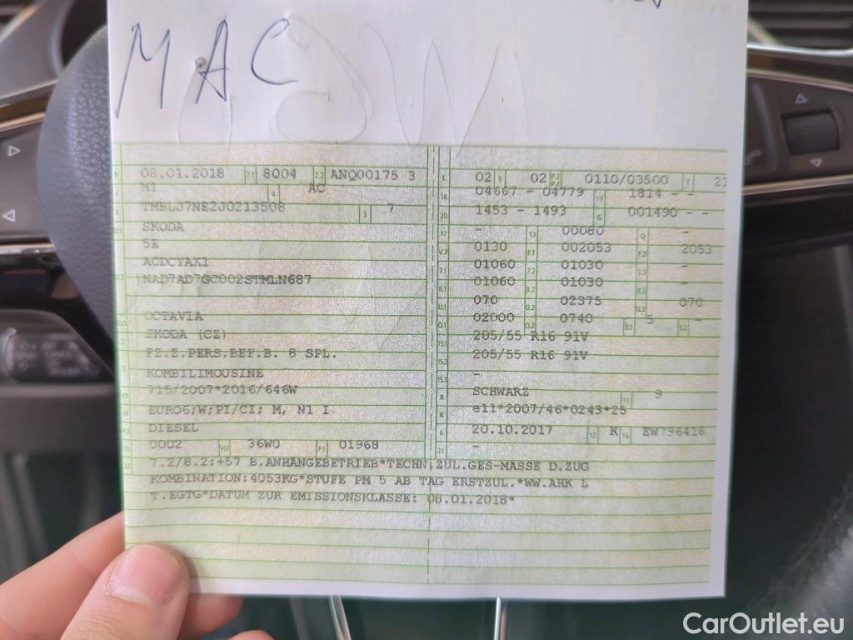 MAC
08.01.2018 8004 ANQ00175 3
M1 AC
TMBLJ7NE2J0213508 7
SKODA
5E
ACDCYAX1
NAD7AD7GC002STMLN687
OCTAVIA
SKODA (CZ)
FZ.Z.PERS.BEF.B. 8 SPL.
KOMBILIMOUSINE
715/2007*2016/646W
EURO6;W;PI/CI; M, N1 I
DIESEL
0002 36W0 01968
02 02 0110/03500 21
04667 - 04779 1814 - -
1453 - 1493 001490 - -
- 00080 -
0130 002053 2053
01060 01030 -
01060 01030 -
070 02375 070
02000 0740 5 -
205/55 R16 91V
205/55 R16 91V
-
SCHWARZ 9
e11*2007/46*0243*25
20.10.2017 K EW796416
-
7.2/8.2:+57 B.ANHÄNGEBETRIEB*TECHN.ZUL.GES-MASSE D.ZUG
KOMBINATION:4053KG*STUFE PM 5 AB TAG ERSTZUL.*WW.AHK L
T.EGTG*DATUM ZUR EMISSIONSKLASSE: 08.01.2018*
CarOutlet.eu